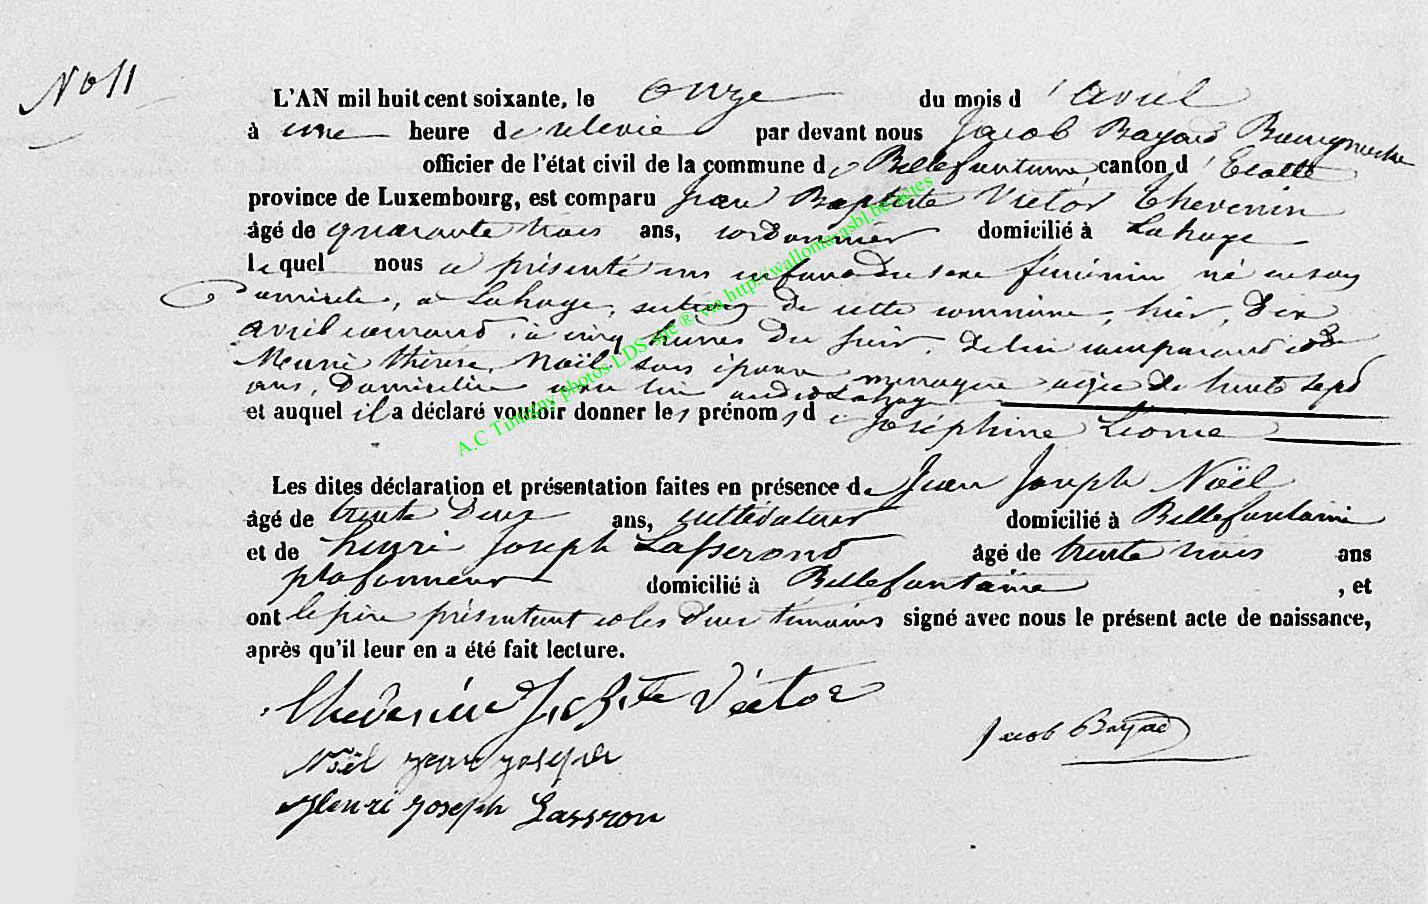 No 11
L'AN mil huit cent soixante, le onze du mois d'avril
à une heure de relevée par devant nous Jacob Bayard Bourgmestre
officier de l'état civil de la commune de Bellefontaine, canton d'Etalle
province de Luxembourg, est comparu Jean Baptiste Victor Thevenin
âgé de quarante trois ans, cordonnier domicilié à Lahage
lequel nous a présenté un enfant du sexe féminin né en son
domicile, à Lahage, section de cette commune, hier, dix
avril courant, à cinq heures du soir, de lui comparant et de
Marie Thérèse Noël son épouse ménagère âgée de trente sept
ans, domiciliée avec lui audit Lahage
et auquel il a déclaré vouloir donner les prénoms de Joséphine Léonie
Les dites déclaration et présentation faites en présence de Jean Joseph Noël
âgé de trente deux ans, cultivateur domicilié à Bellefontaine
et de henri Joseph Lasserond âgé de trente trois ans
plafonneur domicilié à Bellefontaine, et
ont le père présentant et les deux témoins signé avec nous le présent acte de naissance,
après qu'il leur en a été fait lecture.
Thevenin J. Bte Victor
Jacob Bayard
Noël jean joseph
Henri joseph Lassron
A.C Tintigny photos LDS-sec ® via http://wallonia.asbl.be/actes